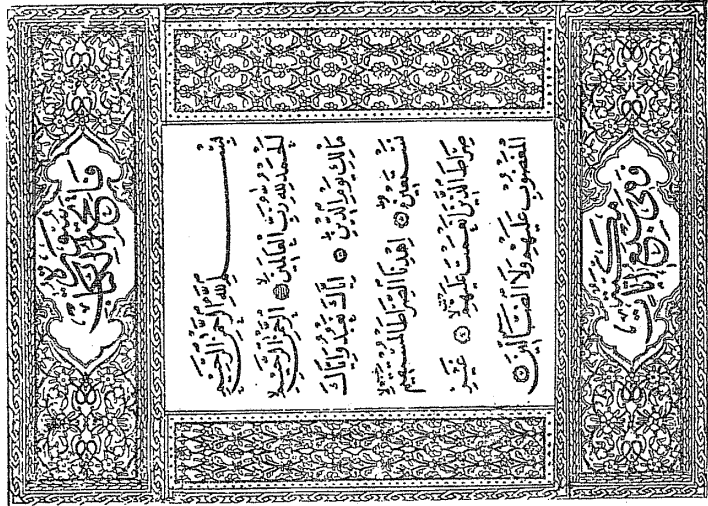 سورة فاتحة الكتاب
بِسْمِ اللَّهِ الرَّحْمَنِ الرَّحِيمِ
الْحَمْدُ لِلَّهِ رَبِّ الْعَالَمِينَ الرَّحْمَنِ الرَّحِيمِ
مَالِكِ يَوْمِ الدِّينِ إِيَّاكَ نَعْبُدُ وَإِيَّاكَ
نَسْتَعِينُ اهْدِنَا الصِّرَاطَ الْمُسْتَقِيمَ
صِرَاطَ الَّذِينَ أَنْعَمْتَ عَلَيْهِمْ غَيْرِ
الْمَغْضُوبِ عَلَيْهِمْ وَلَا الضَّالِّينَ
وهي سبع آيات